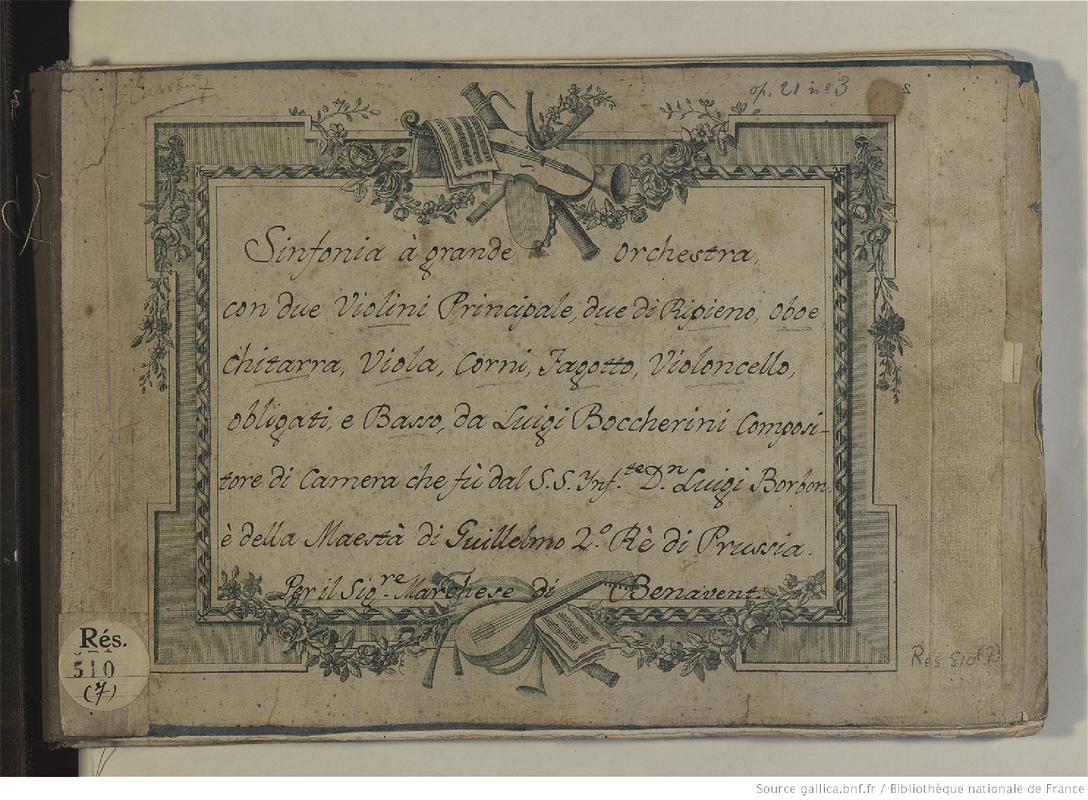 op. 21 nº 3
2
Sinfonia à grande orchestra,
con due Violini Principale, due di Ripieno, oboe
chitarra, Viola, Corni, Fagotto, Violoncello,
obligati, e Basso, da Luigi Boccherini Composi-
tore di Camera che fù dal S.S. Ynf.te D.n Luigi Borbon.
è della Maestà di Guillelmo 2.º Rè di Prussia.
Per il Sig.re Marchese di Benavent.
Rés.
510
(7)
Rés 510(7)
Source gallica.bnf.fr / Bibliothèque nationale de France